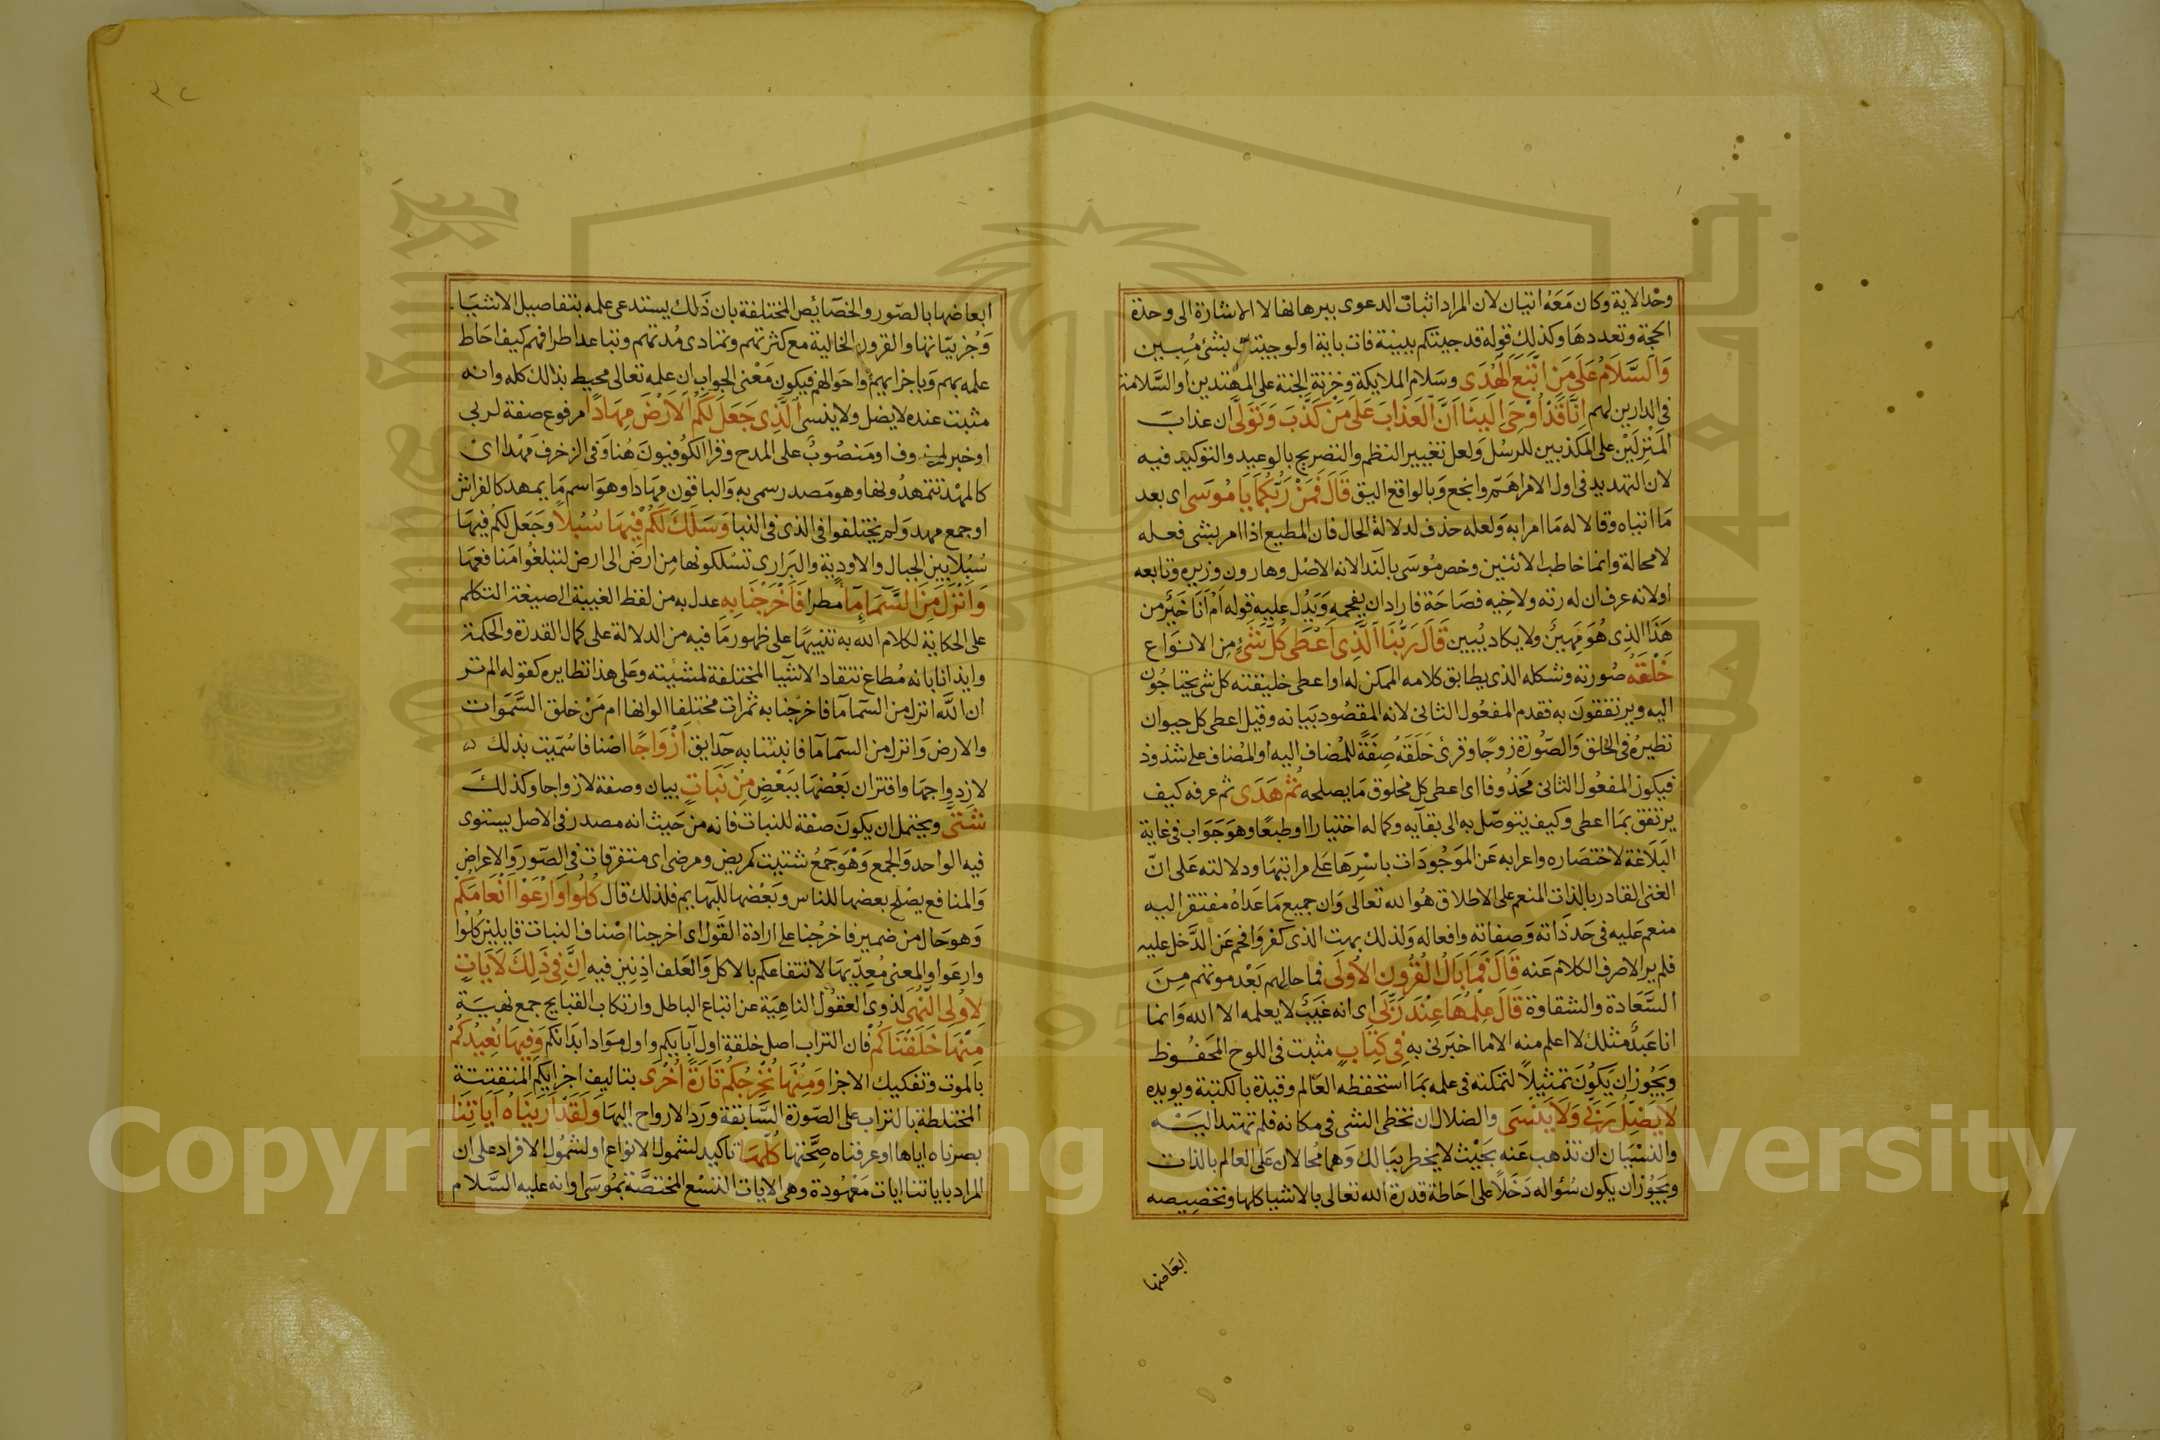 وحد الاية وكان معه اتيان لان المراد اثبات الدعوى ببرهانها لا الاشارة الى وحدة
الحجة وتعددها وكذلك قوله قد جيتكم ببينة فات باية اولو جيتك بشئ مبين
وَالسَّلَامُ عَلَى مَنِ اتَّبَعَ الْهُدَى وسلام الملايكة وخزنة الجنة على المهتدين او السلامة
فى الدارين لهم اِنَّا قَدْ اُوْحِىَ اِلَيْنَا اَنَّ الْعَذَابَ عَلَى مَنْ كَذَّبَ وَتَوَلَّى ان عذاب
المنزلين على المكذبين للرسل ولعل تغيير النظم والتصريح بالوعيد والتوكيد فيه
لان التهديد فى اول الامر اهم وانجع وبالواقع اليق قَالَ فَمَنْ رَبُّكُمَا يَا مُوسَى اى بعد
ما اتياه وقالا له ما امرا به ولعله حذف لدلالة الحال فان المطيع اذا امر بشى فعله
لا محالة وانما خاطب الاثنين وخص موسى بالندا لانه الاصل وهارون وزيره وتابعه
اولانه عرف ان له رتة ولاخيه فصاحة فاراد ان يفحمه ويدل عليه قوله ام انا خير من
هذا الذى هو مهين ولا يكاد يبين قَالَ رَبُّنَا الَّذِى اَعْطَى كُلَّ شَىْءٍ من الانواع
خَلْقَهُ صورته وشكله الذى يطابق كلامه الممكن له او اعطى خليقته كل شى يحتاجون
اليه ويرتفقون به فقدم المفعول الثانى لانه المقصود بيانه وقيل اعطى كل حيوان
نظيره فى الخلق والصورة زوجا وقرئ خلقه صفة للمضاف اليه او المضاف على شذوذ
فيكون المفعول الثانى محذوفا اى اعطى كل مخلوق ما يصلحه ثُمَّ هَدَى ثم عرفه كيف
يرتفق بما اعطى وكيف يتوصل به الى بقآيه وكماله اختيارا او طبعا وهو جواب فى غاية
البلاغة لاختصاره واعرابه عن الموجودات باسرها على مراتبها ودلالته على ان
الغنى القادر بالذات المنعم على الاطلاق هو الله تعالى وان جميع ما عداه مفتقر اليه
منعم عليه فى حد ذاته وصفاته وافعاله ولذلك بهت الذى كفر وافحم عن الدخل عليه
فلم ير الا صرف الكلام عنه قَالَ فَمَا بَالُ الْقُرُونِ الْاُولَى فما حالهم بعد موتهم من
السعادة والشقاوة قَالَ عِلْمُهَا عِنْدَ رَبِّى اى انه غيب لا يعلمه الا الله وانما
انا عبد مثلك لا اعلم منه الا ما اخبرنى به فِى كِتَابٍ مثبت فى اللوح المحفوظ
ويجوز ان يكون تمثيلا لتمكنه فى علمه بما استحفظه العالم وقيده بالكتبة ويويده
لَا يَضِلُّ رَبِّى وَلَا يَنْسَى والضلال ان تخطى الشى فى مكانه فلم تهتد اليه
والنسيان ان تذهب عنه بحيث لا يخطر ببالك وهما محالان على العالم بالذات
ويجوز ان يكون سؤاله دخلا على احاطة قدرة الله تعالى بالاشيا كلها وتخصيصه
ابعاضها
ابعاضها بالصور والخصآئص المختلفة بان ذلك يستدعى علمه بتفاصيل الاشيا
وجزيياتها والقرون الخالية مع كثرتهم وتمادى مدتهم وتباعد اطرافهم كيف احاط
علمه بهم وباجزايهم واحوالهم فيكون معنى الجواب ان علمه تعالى محيط بذلك كله وانه
مثبت عنده لا يضل ولا ينسى اَلَّذِى جَعَلَ لَكُمُ الْاَرْضَ مِهَادًا مرفوع صفة لربى
او خبر لمحذوف او منصوب على المدح وقرا الكوفيون هنا وفى الزخرف مهدا اى
كالمهد تتمهدونها وهو مصدر سمى به والباقون مهادا وهو اسم ما يمهد كالفراش
او جمع مهد ولم يختلفوا فى الذى فى النبا وَسَلَكَ لَكُمْ فِيْهَا سُبُلًا وجعل لكم فيها
سبلا بين الجبال والاودية والبرارى تسلكونها من ارض الى ارض لتبلغوا منافعها
وَاَنْزَلَ مِنَ السَّمَاءِ مَاءً مطرا فَاَخْرَجْنَا بِهِ عدل به من لفظ الغيبة الى صيغة التكلم
على الحكاية لكلام الله به تنبيها على ظهور ما فيه من الدلالة على كمال القدرة والحكمة
وايذانا بانه مطاع تنقاد الاشيآ المختلفة لمشيته وعلى هذا نظايره كقوله الم تر
ان الله انزل من السمآ مآ فاخرجنا به ثمرات مختلفا الوانها ام من خلق السموات
والارض وانزل من السمآ مآ فانبتنا به حدآيق اَزْوَاجًا اصنافا سميت بذلك
لازدواجها واقتران بعضها ببعض مِنْ نَبَاتٍ بيان وصفة لازواجا وكذلك
شَتَّى ويحتمل ان يكون صفة للنبات فانه من حيث انه مصدر فى الاصل يستوى
فيه الواحد والجمع وهو جمع شتيت كمريض ومرضى اى متفرقات فى الصور والاعراض
والمنافع يصلح بعضها للناس وبعضها للبهايم فلذلك قال كُلُوا وَارْعَوْا اَنْعَامَكُمْ
وهو حال من ضمير فاخرجنا على ارادة القول اى اخرجنا اصناف النبات قايلين كلوا
وارعوا والمعنى معديها لانتفاعكم بالاكل والعلف اذنين فيه اِنَّ فِى ذَلِكَ لَآيَاتٍ
لِاُولِى النُّهَى لذوى العقول الناهية عن اتباع الباطل وارتكاب القبايح جمع نهية
مِنْهَا خَلَقْنَاكُمْ فان التراب اصل خلقة اول آبايكم واول مواد ابدانكم وَفِيهَا نُعِيدُكُمْ
بالموت وتفكيك الاجزا وَمِنْهَا نُخْرِجُكُمْ تَارَةً اُخْرَى بتاليف اجزايكم المتفتتة
المختلطة بالتراب على الصورة السابقة ورد الارواح اليها وَلَقَدْ اَرَيْنَاهُ اَيَاتِنَا
بصرناه اياها او عرفناه صحتها كُلَّهَا تاكيد لشمول الانواع او لشمول الافراد على ان
المراد باياتنا ايات معهودة وهى الايات التسع المختصة بموسى او انه عليه السلام
Copyright © King Saud University